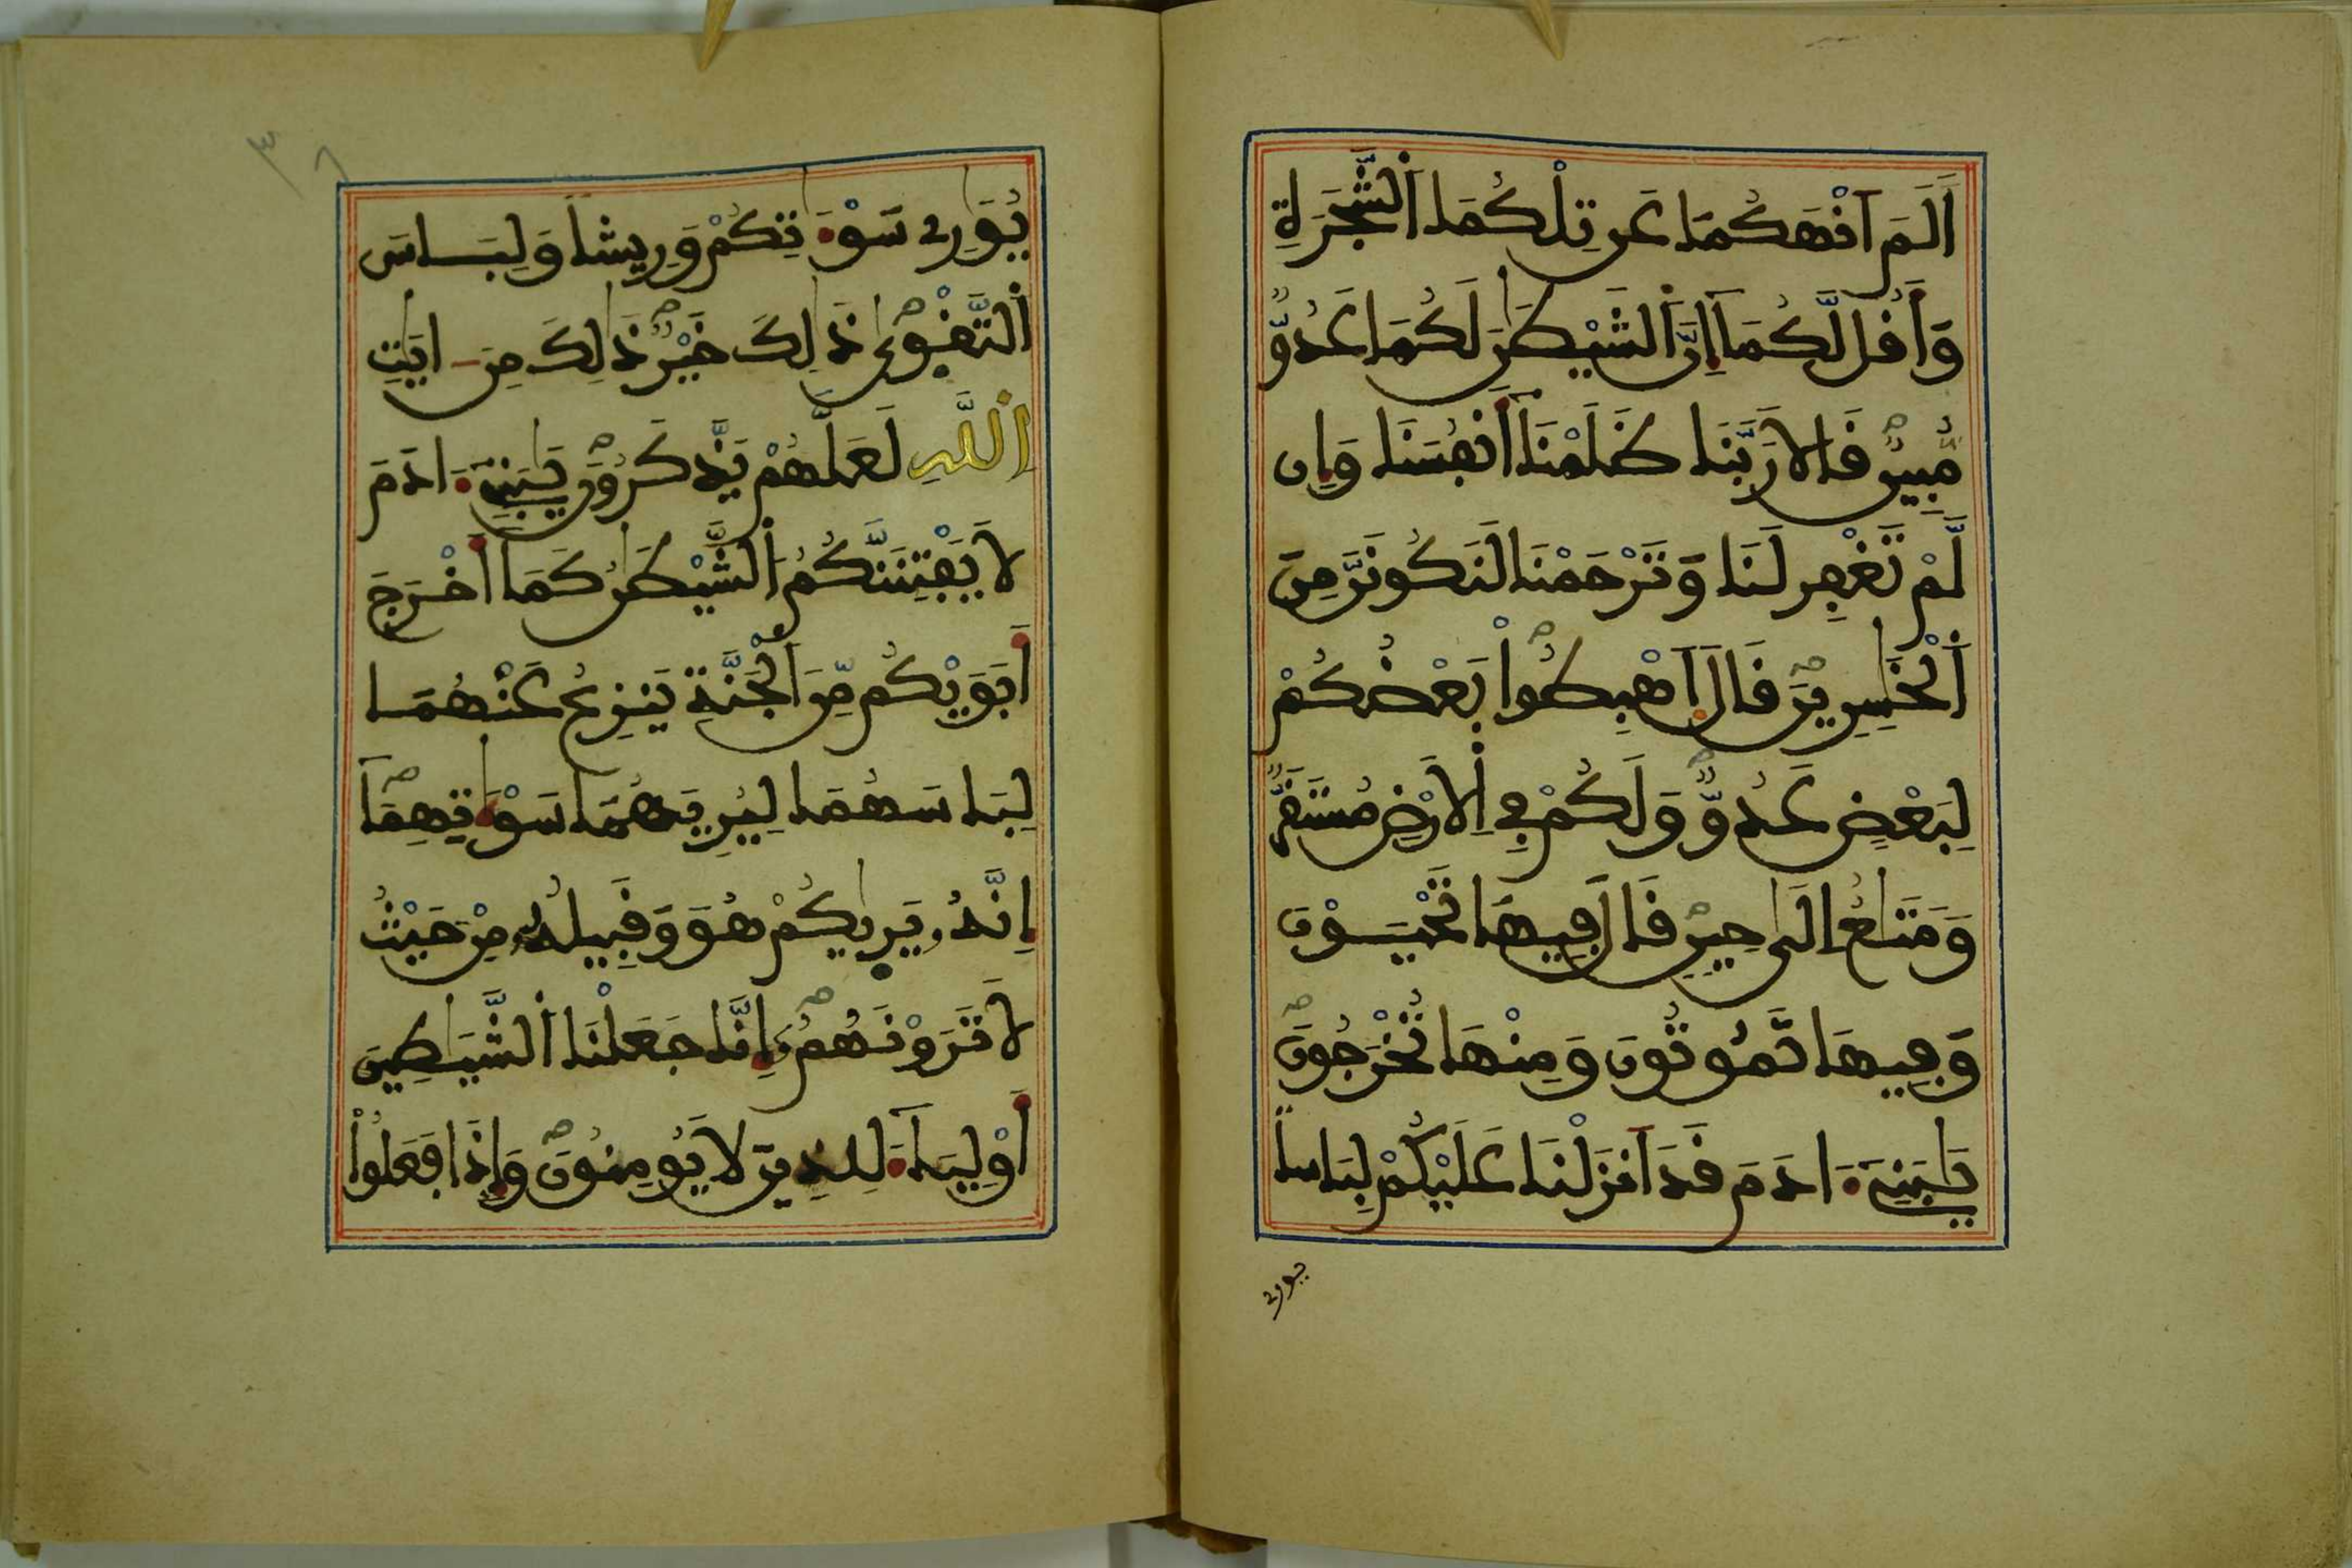 أَلَمَ اَنْهَكُمَا عَن تِلْكُمَا اَلشَّجَرَةِ
وَأَقُل لَّكُمَا إِنَّ اَلشَّيْطَٰنَ لَكُمَا عَدُوٌّ
مُّبِينٌ قَالَا رَبَّنَا ظَلَمْنَا أَنفُسَنَا وَإِن
لَّمْ تَغْفِر لَنَا وَتَرْحَمْنَا لَنَكُونَنَّ مِنَ
اَلْخَٰسِرِينَ قَالَ اَهْبِطُواْ بَعْضُكُمْ
لِبَعْضٍ عَدُوٌّ وَلَكُمْ فِي اِلَارْضِ مُسْتَقَرٌّ
وَمَتَٰعٌ اِلَىٰ حِينٍ قَالَ فِيهَا تَحْيَوْنَ
وَفِيهَا تَمُوتُونَ وَمِنْهَا تُخْرَجُونَ
يَٰبَنِےٓ ءَادَمَ قَدَ اَنزَلْنَا عَلَيْكُمْ لِبَاساً
يورے
يُوَٰرِے سَوْءَٰتِكُمْ وَرِيشاً وَلِبَاسَ
اَلتَّقْوٜىٰ ذَٰلِكَ خَيْرٌ ذَٰلِكَ مِنَ ـ ايَٰتِ
اِللَّهِ لَعَلَّهُمْ يَذَّكَّرُونَ يَٰبَنِےٓ ءَادَمَ
لَا يَفْتِنَنَّكُمُ اُلشَّيْطَٰنُ كَمَا أَخْرَجَ
أَبَوَيْكُم مِّنَ اَلْجَنَّةِ يَنزِعُ عَنْهُمَا
لِبَاسَهُمَا لِيُرِيَهُمَا سَوْءَٰتِهِمَا
إِنَّهُۥ يَرٜىٰكُمْ هُوَ وَقَبِيلُهُۥ مِنْ حَيْثُ
لَا تَرَوْنَهُمُۥ إِنَّا جَعَلْنَا اَلشَّيَٰطِينَ
أَوْلِيَآءَ لِلذِينَ لَا يُومِنُونَ وَإِذَا فَعَلُواْ